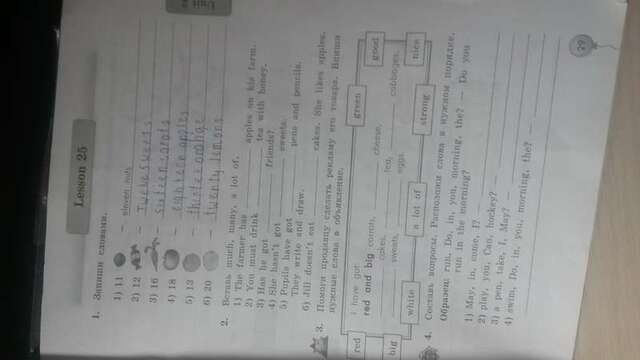 Lesson 25
1. Запиши словами.
1) 11 — eleven nuts
2) 12 — Twelve sweets
3) 16 — sixteen carots
4) 18 — eighteen apples
5) 13 — orange
6) 20 — twenty lemons
2. Вставь much, many, a lot of.
1) The farmer has ________ apples on his farm.
2) You must drink ________ tea with honey.
3) Has he got ________ friends?
4) She hasn't got ________ sweets.
5) Pupils have got ________ pens and pencils.
They write and draw.
6) Jill doesn't eat ________ cakes. She likes apples.
3. Помоги продавцу сделать рекламу его товара. Впиши
нужные слова в объявление.
red
green
I have got
good
red and big carrots, ________ cheese,
________ cakes, ________ tea, ________ cabbages,
big
________ sweets, ________ eggs.
nice
white
a lot of
strong
4. Составь вопросы. Расположи слова в нужном порядке.
Образец: run, Do, in, you, morning, the? — Do you
run in the morning?
1) May, in, come, I? —
2) play, you, Can, hockey? —
3) a pen, take, I, May? —
4) swim, Do, in, you, morning, the? —
29